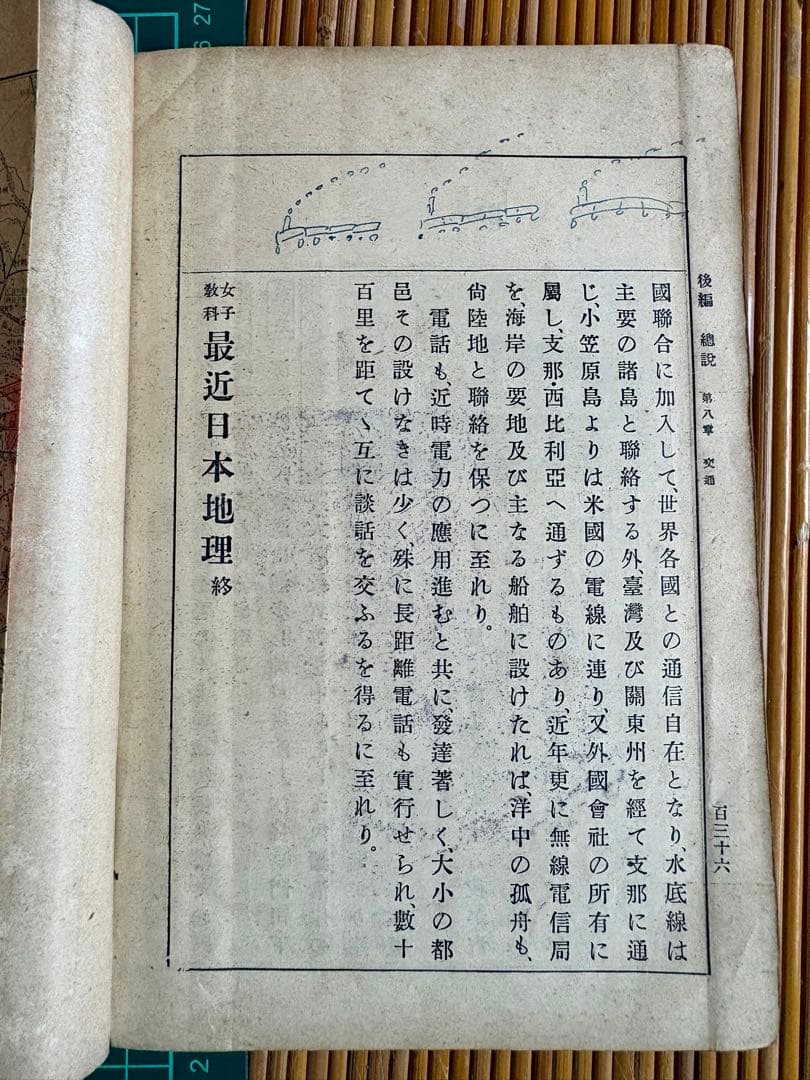 後編 總說 第八章 交通
百三十六
國聯合に加入して、世界各國との通信自在となり、水底線は
主要の諸島と聯絡する外、臺灣及び關東州を經て支那に通
じ、小笠原島よりは米國の電線に連り、又外國會社の所有に
屬し、支那・西比利亞へ通ずるものあり、近年更に無線電信局
を、海岸の要地及び主なる船舶に設けたれば、洋中の孤舟も、
尙陸地と聯絡を保つに至れり。
電話も、近時電力の應用進むと共に、發達著しく、大小の都
邑その設けなきは少く、殊に長距離電話も實行せられ、數十
百里を距てゝ互に談話を交ふるを得るに至れり。
女子敎科 最近日本地理 終
27
26
2